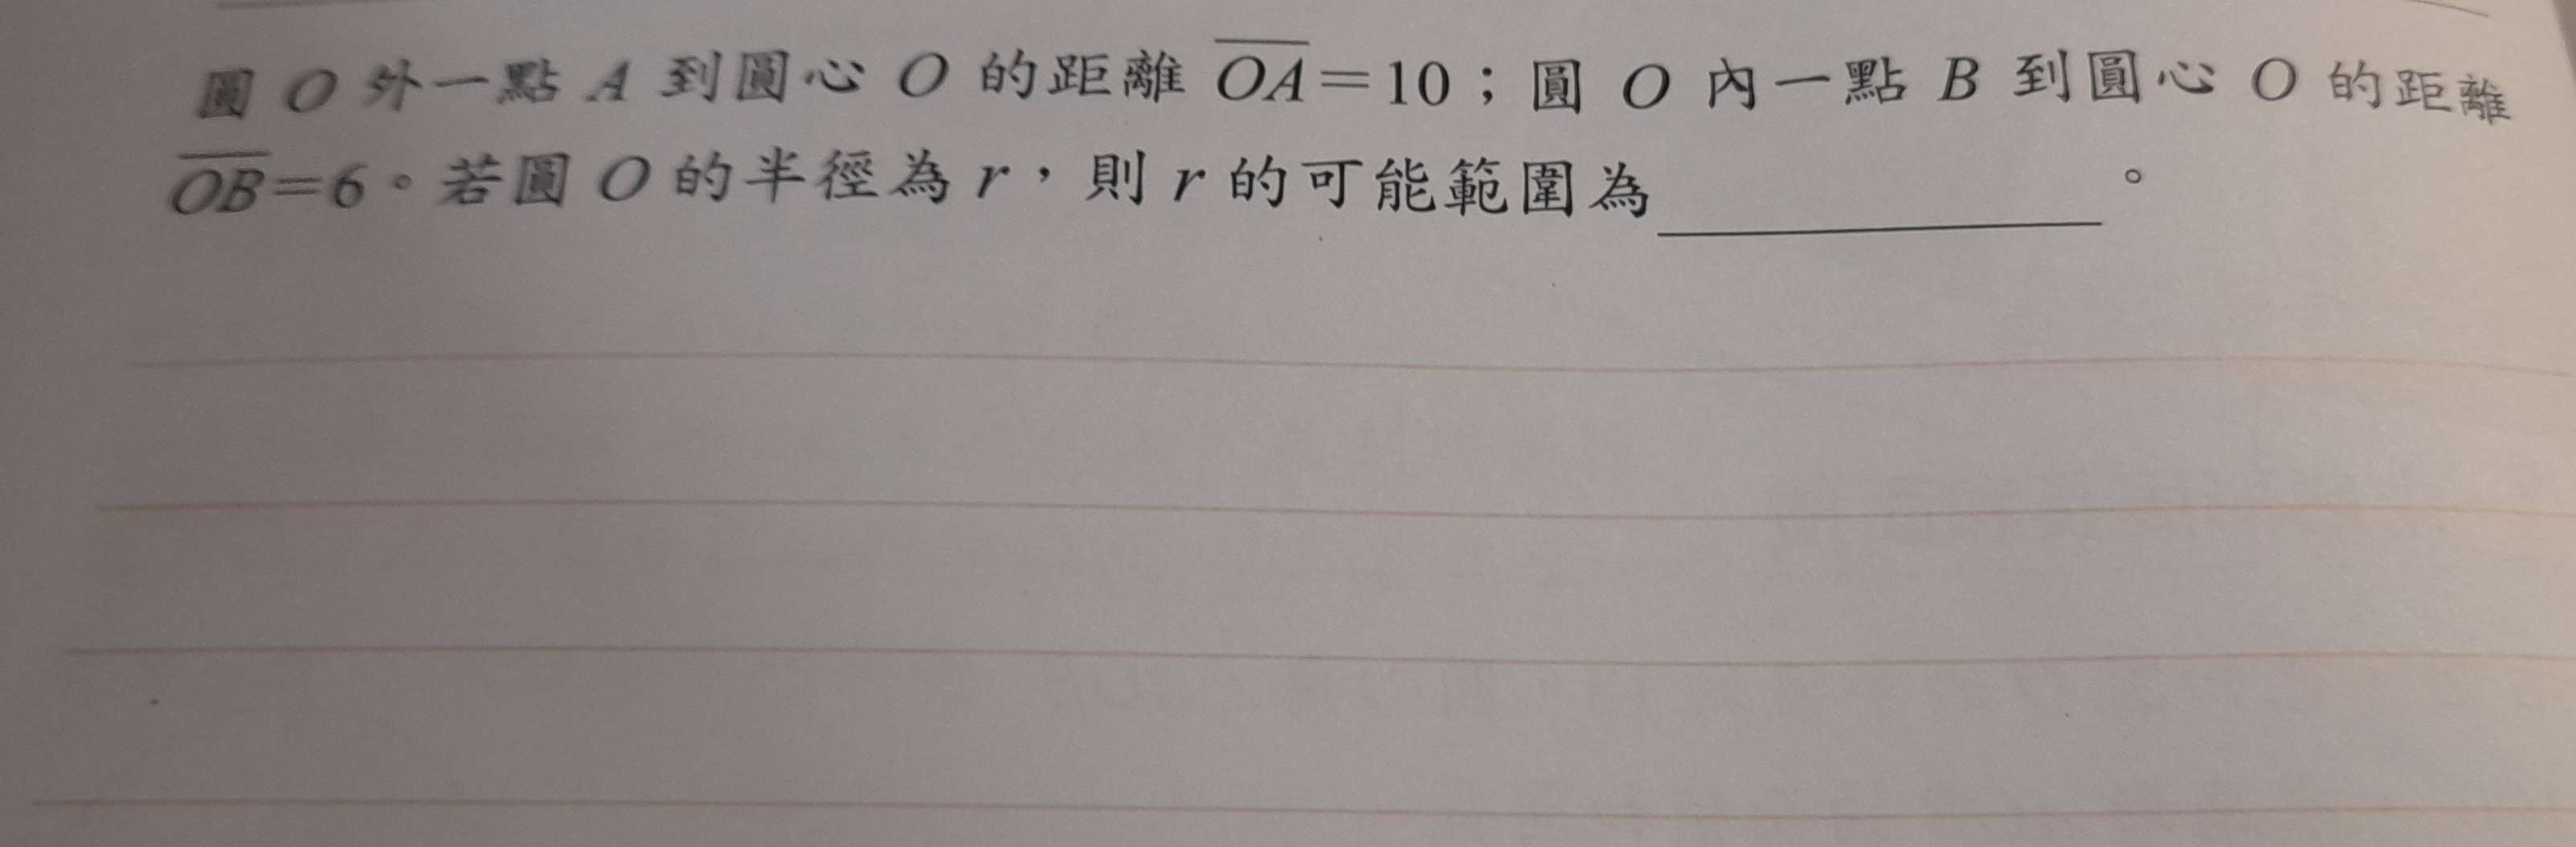 圓 O 外一點 A 到圓心 O 的距離 \overline{OA}=10；圓 O 內一點 B 到圓心 O 的距離
\overline{OB}=6。若圓 O 的半徑為 r，則 r 的可能範圍為__________。